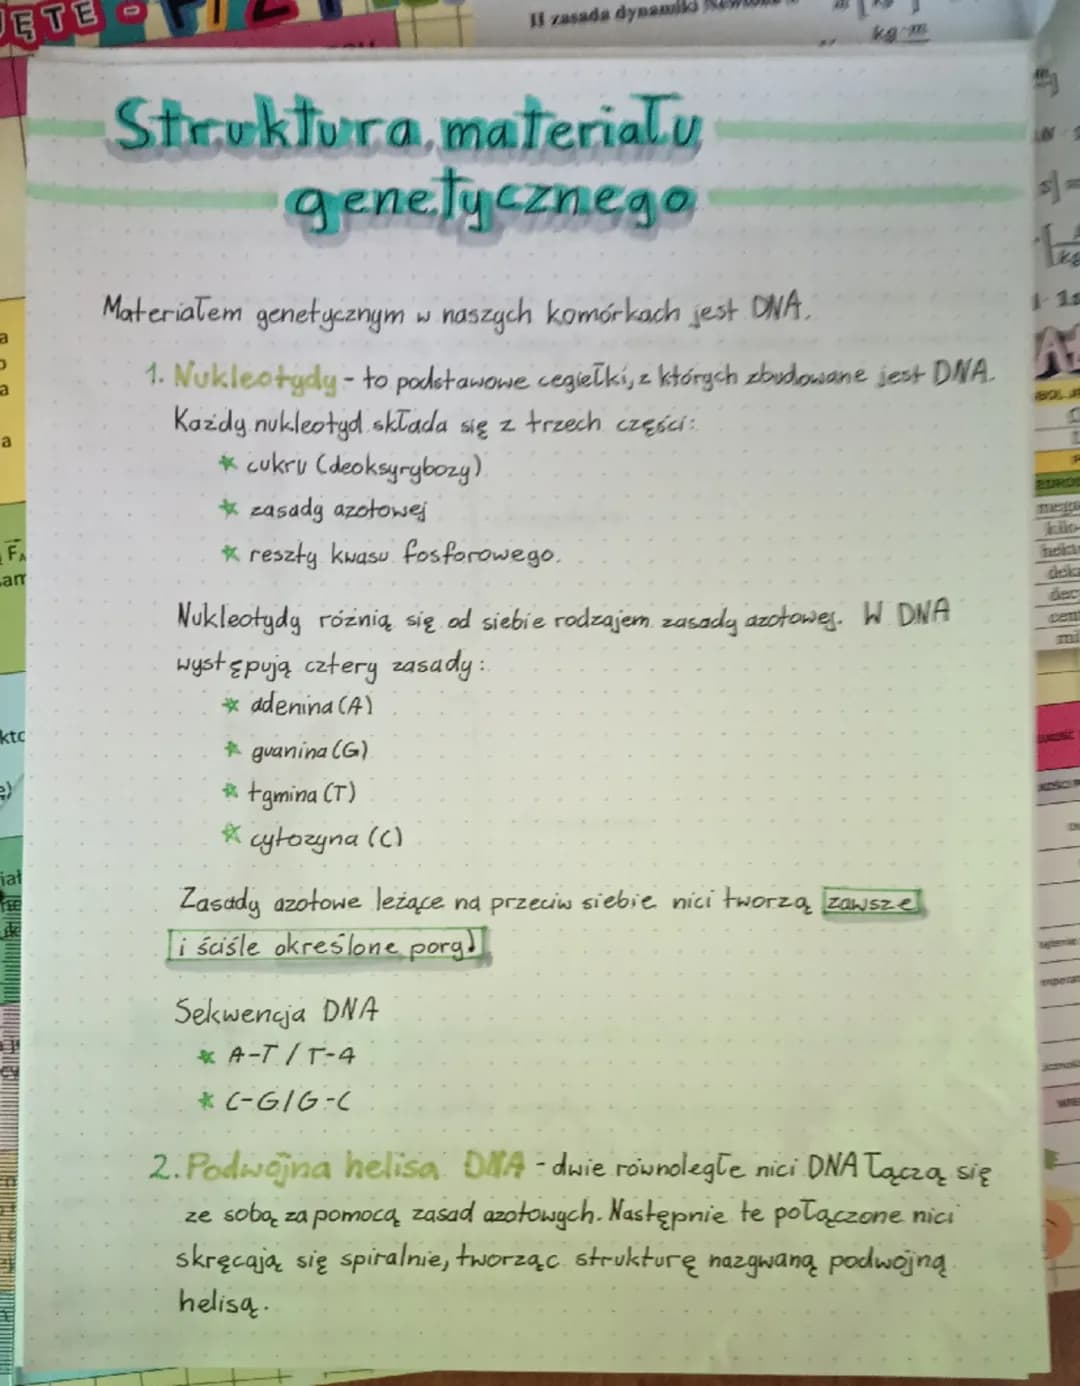 II zasada dynamiki
kg·m
Struktura materiału
genetycznego
Materiałem genetycznym w naszych komórkach jest DNA.
1. Nukleotydy - to podstawowe cegiełki, z których zbudowane jest DNA.
Każdy nukleotyd składa się z trzech części:
* cukru (deoksyrybozy)
* zasady azotowej
* reszty kwasu fosforowego.
Nukleotydy różnią się od siebie rodzajem zasady azotowej. W DNA
występują cztery zasady:
* adenina (A)
* guanina (G)
* tymina (T)
* cytozyna (C)
Zasady azotowe leżące na przeciw siebie nici tworzą zawsze
i ściśle określone pary)
Sekwencja DNA
* A-T / T-A
* C-G/G-C
2. Podwójna helisa DNA - dwie równoległe nici DNA łączą się
ze sobą za pomocą zasad azotowych. Następnie te połączone nici
skręcają się spiralnie, tworząc strukturę nazywaną podwójną
helisą.